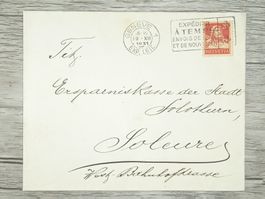 GENÈVE 1
19.XII
1931
EXP. LETT.
EXPÉDI
À TEM
ENVOIS DE
ET DE NOUV
HELVETIA
Tit.
Ersparniskasse der Stadt
Solothurn,
Soleure
Bahnhofstrasse